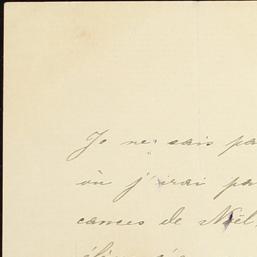 Je ne sais pa
où j'irai pa
cances de Noël